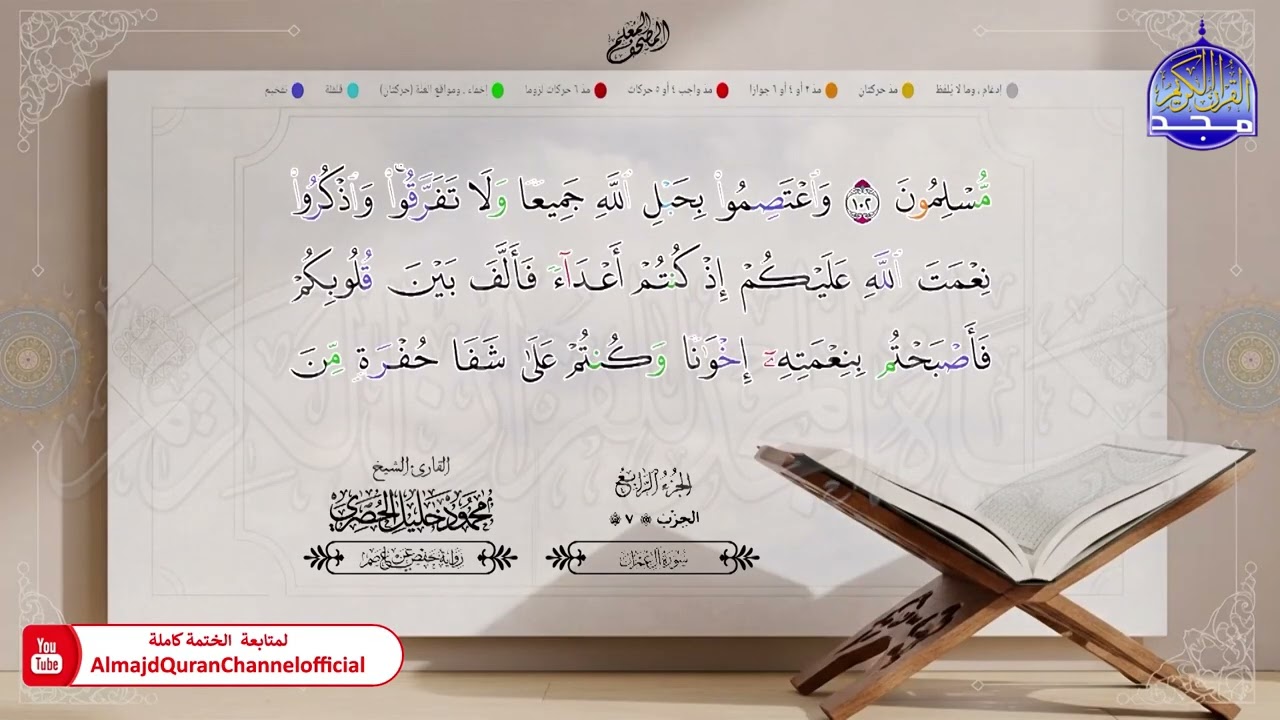 المصحف المعلم
إدغام ـ وما لا يُلفظ مد حركتان مد ٢ أو ٤ أو ٦ جوازا مد واجب ٤ أو ٥ حركات مد ٦ حركات لزوما إخفاء ـ ومواقع الغنة (حركتان) قلقلة تفخيم
القرآن الكريم
مجد
مُّسْلِمُونَ ١٠٢ وَٱعْتَصِمُوا۟ بِحَبْلِ ٱللَّهِ جَمِيعًا وَلَا تَفَرَّقُوا۟ ۚ وَٱذْكُرُوا۟
نِعْمَتَ ٱللَّهِ عَلَيْكُمْ إِذْ كُنتُمْ أَعْدَآءً فَأَلَّفَ بَيْنَ قُلُوبِكُمْ
فَأَصْبَحْتُم بِنِعْمَتِهِۦٓ إِخْوَٰنًا وَكُنتُمْ عَلَىٰ شَفَا حُفْرَةٍ مِّنَ
الجزء الرابع
الحزب ٧
سورة آل عمران
القارئ الشيخ
محمود خليل الحصري
رواية حفص عن عاصم
You Tube
لمتابعة الختمة كاملة
AlmajdQuranChannelofficial